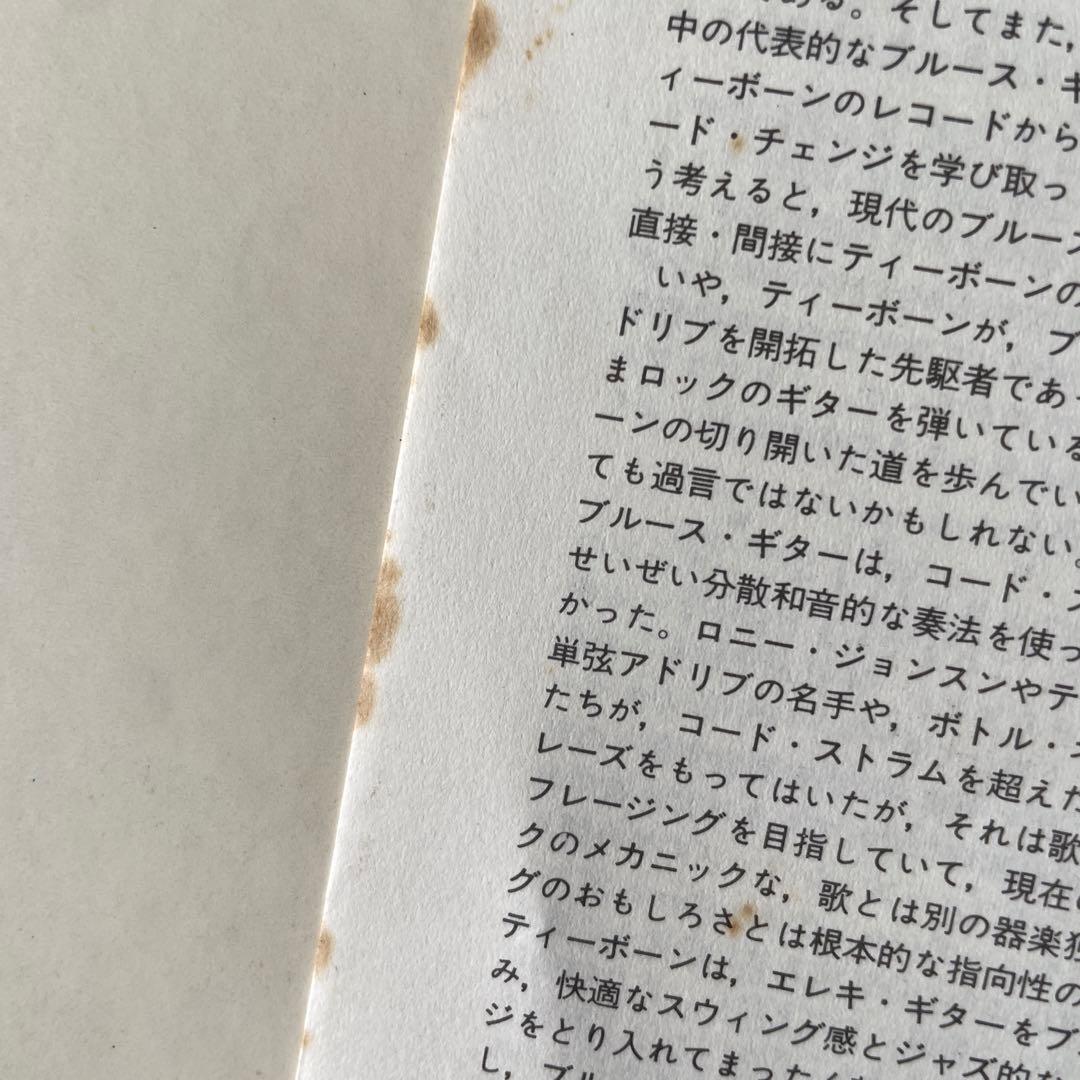 ある。そしてまた，
中の代表的なブルース・ギ
ィーボーンのレコードから
ード・チェンジを学び取っ
う考えると，現代のブルース
直接・間接にティーボーンの
いや，ティーボーンが，ブ
ドリブを開拓した先駆者であっ
まロックのギターを弾いている
ーンの切り開いた道を歩んでい
ても過言ではないかもしれない。
ブルース・ギターは，コード・ス
せいぜい分散和音的な奏法を使っ
かった。ロニー・ジョンスンやテ
単弦アドリブの名手や，ボトル・ネ
たちが，コード・ストラムを超えた
レーズをもってはいたが，それは歌
フレージングを目指していて，現在の
クのメカニックな，歌とは別の器楽独
グのおもしろさとは根本的な指向性の
ティーボーンは，エレキ・ギターをブ
み，快適なスウィング感とジャズ的な
ジをとり入れてまったく
し，ブル